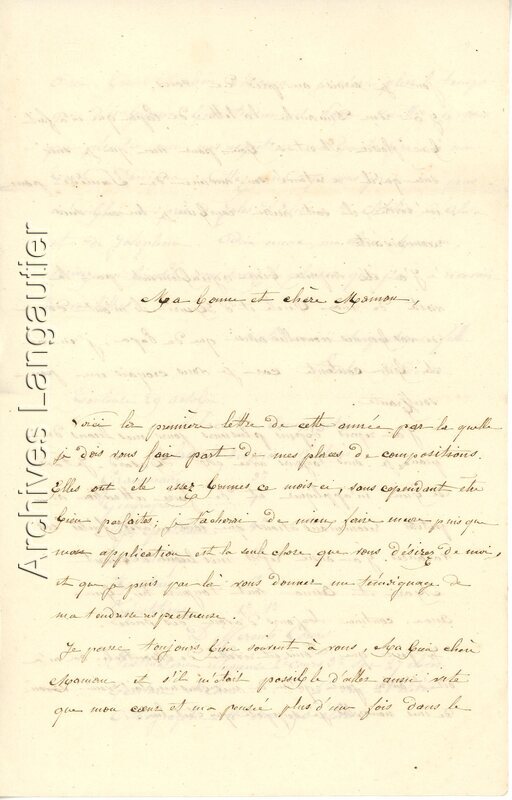 Ma bonne et chère Maman,
Voici la première lettre de cette année par la quelle
je dois vous faire part de mes places de compositions.
Elles ont été assez bonnes ce mois ci, sans cependant être
bien parfaites; je tacherai de mieux faire encore puisque
mon application est la seule chose que vous désirez de moi,
et que je puis par là vous donner un témoignage de
ma tendresse respectueuse.
Je pense toujours bien souvent à vous, Ma bien chère
Maman et s'il m'était possible d'aller aussi vite
que mon cœur et ma pensée plus d'une fois dans le
Archives Langautier